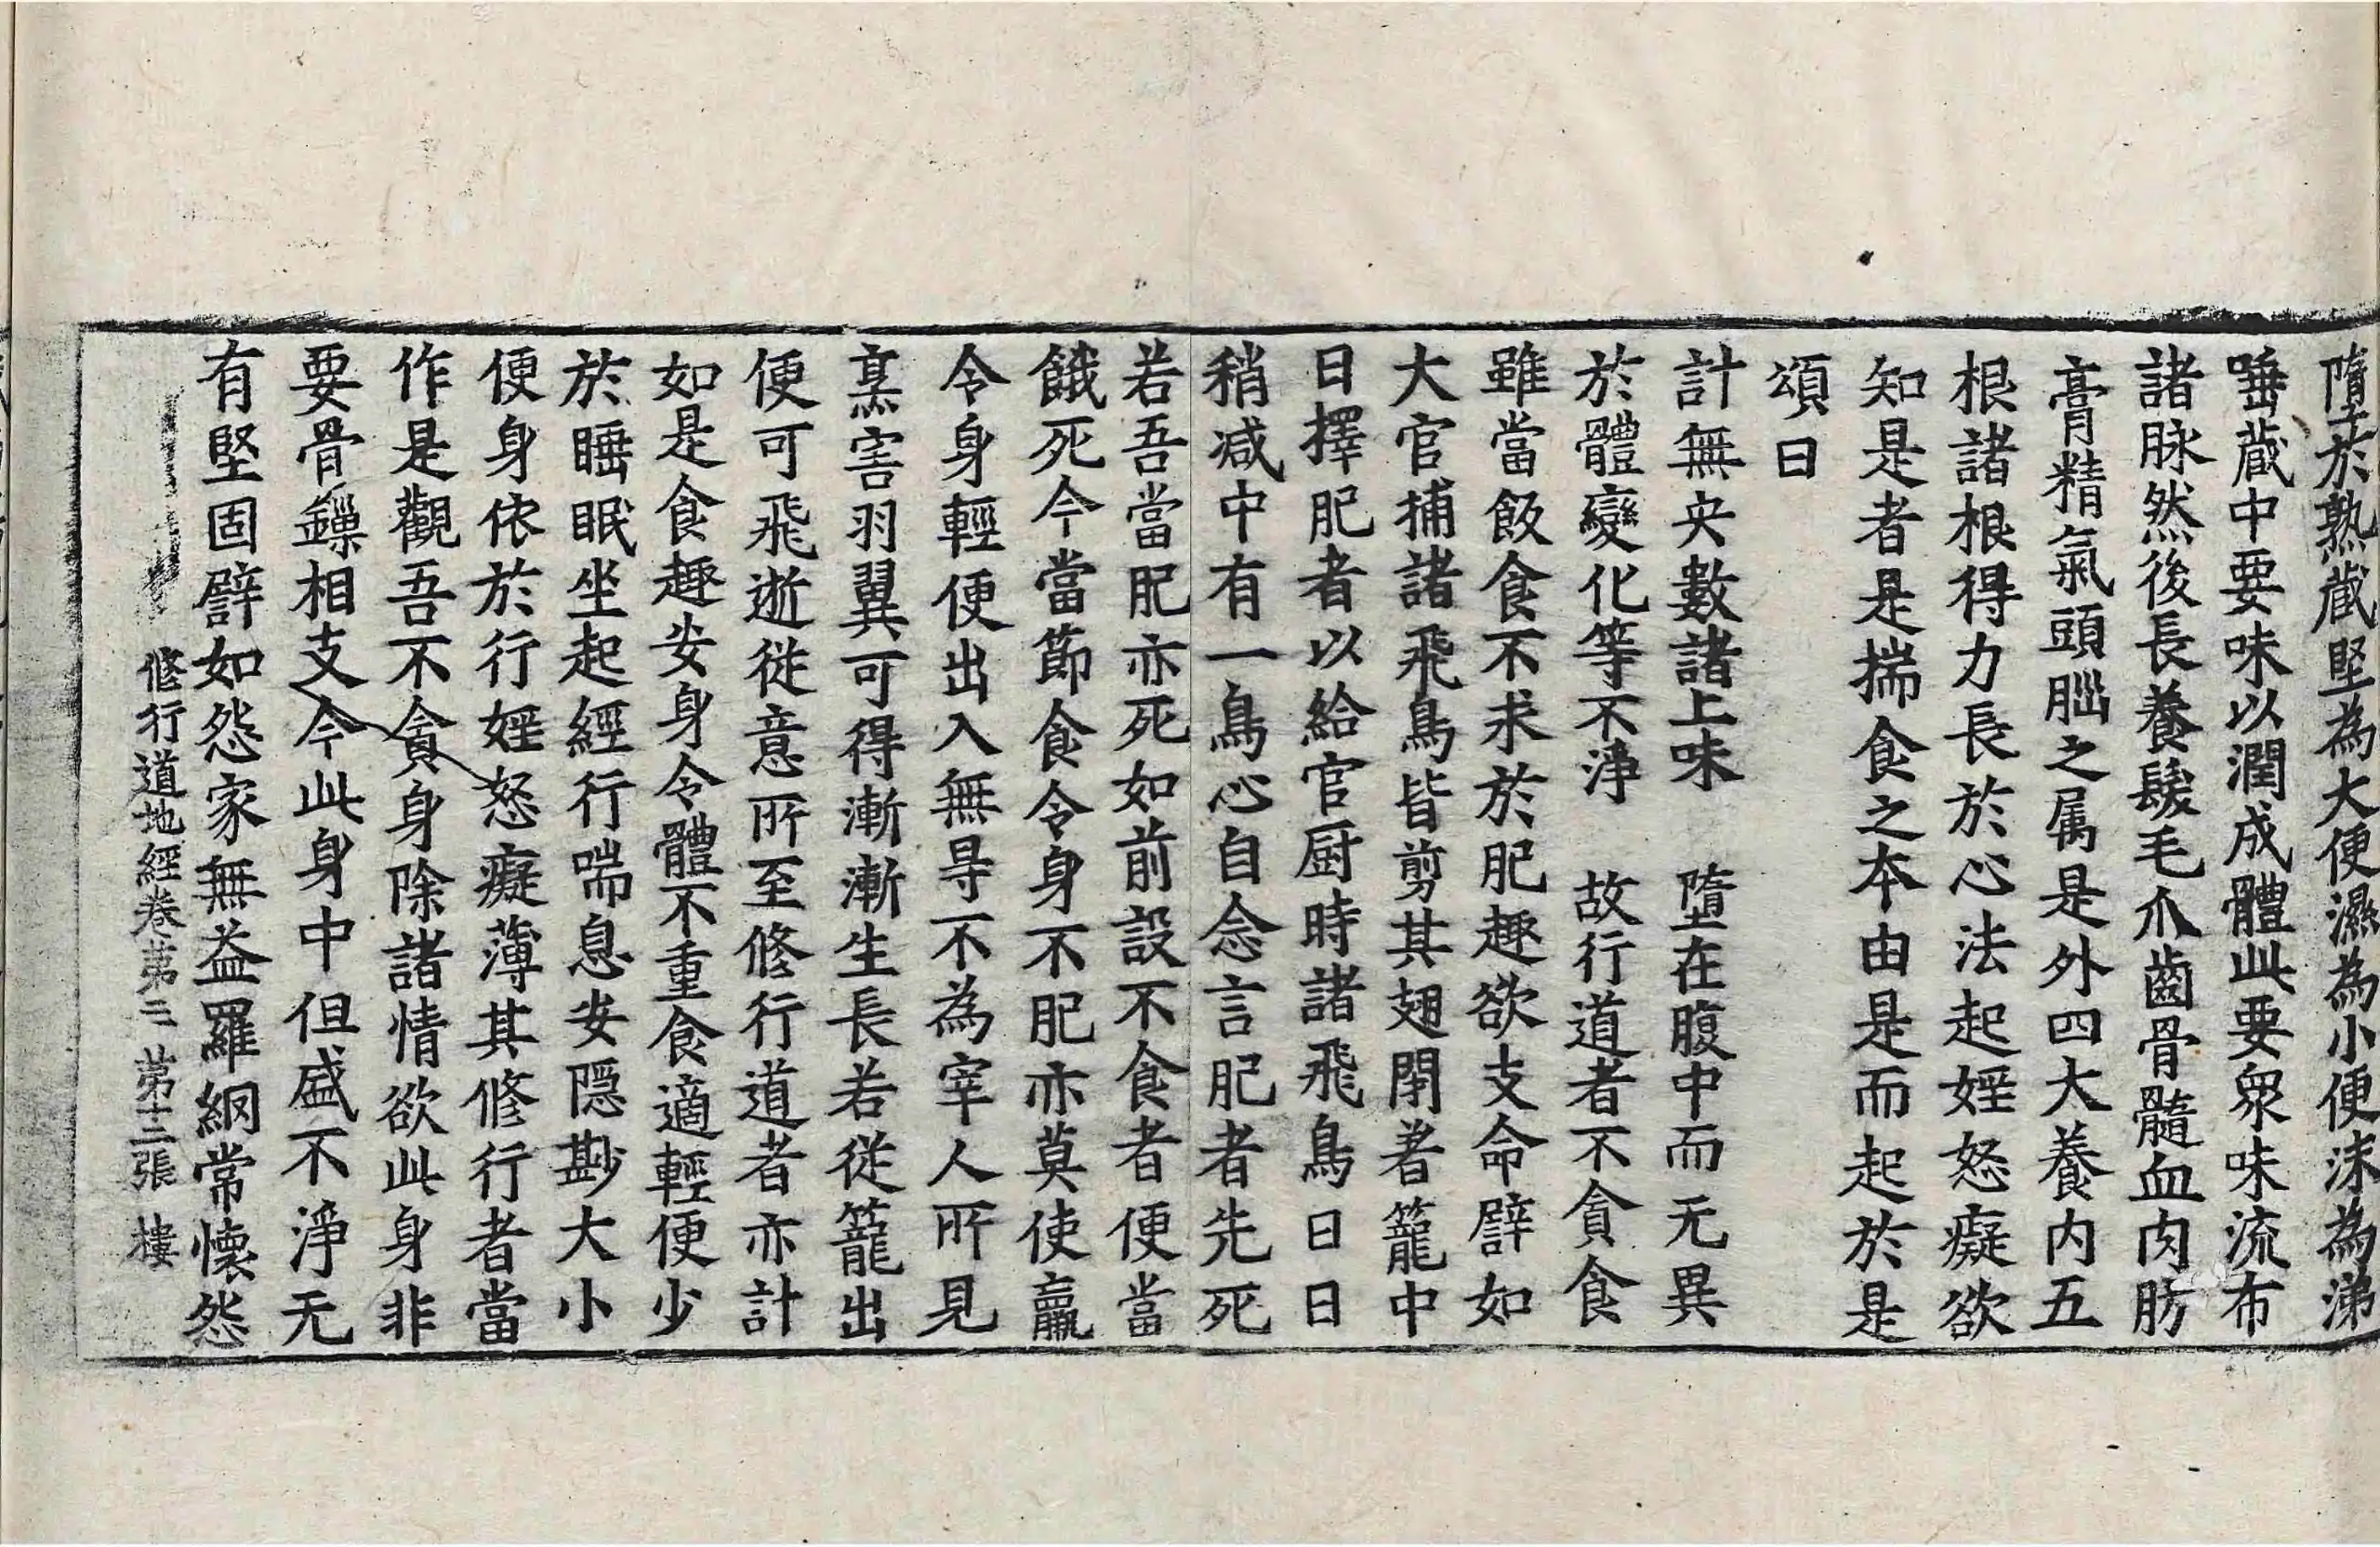 墮於熟蔵堅為大便濕為小便沫為涕
唾蔵中要味以潤成體此要衆味流布
諸脉然後長養髮毛爪齒骨髓血肉肪
膏精氣頭𦛁之属是外四大養内五
根諸根得力長於心法起婬怒癡欲
知是者是揣食之本由是而起於是
頌曰
計無央數諸上味　墮在腹中而无異
於體變化等不淨　故行道者不貪食
雖當飯食不求於肥趣欲支命譬如
大官捕諸飛鳥皆剪其翅閇著籠中
日擇肥者以給官厨時諸飛鳥日日
稍减中有一鳥心自念言肥者先死
若吾當肥亦死如前設不食者便當
餓死今當節食令身不肥亦莫使羸
令身輕便出入無㝵不為宰人所見
烹害羽翼可得漸漸生長若從籠出
便可飛逝從意所至修行道者亦計
如是食趣安身令體不重食適輕便少
於睡眠坐起經行喘息安隱尠大小
便身依於行婬怒癡薄其修行者當
作是觀吾不貪身除諸情欲此身非
要骨鏁相支今此身中但盛不淨无
有堅固譬如怨家無益羅網常懷怨
修行道地經卷第二　第十二張　樓